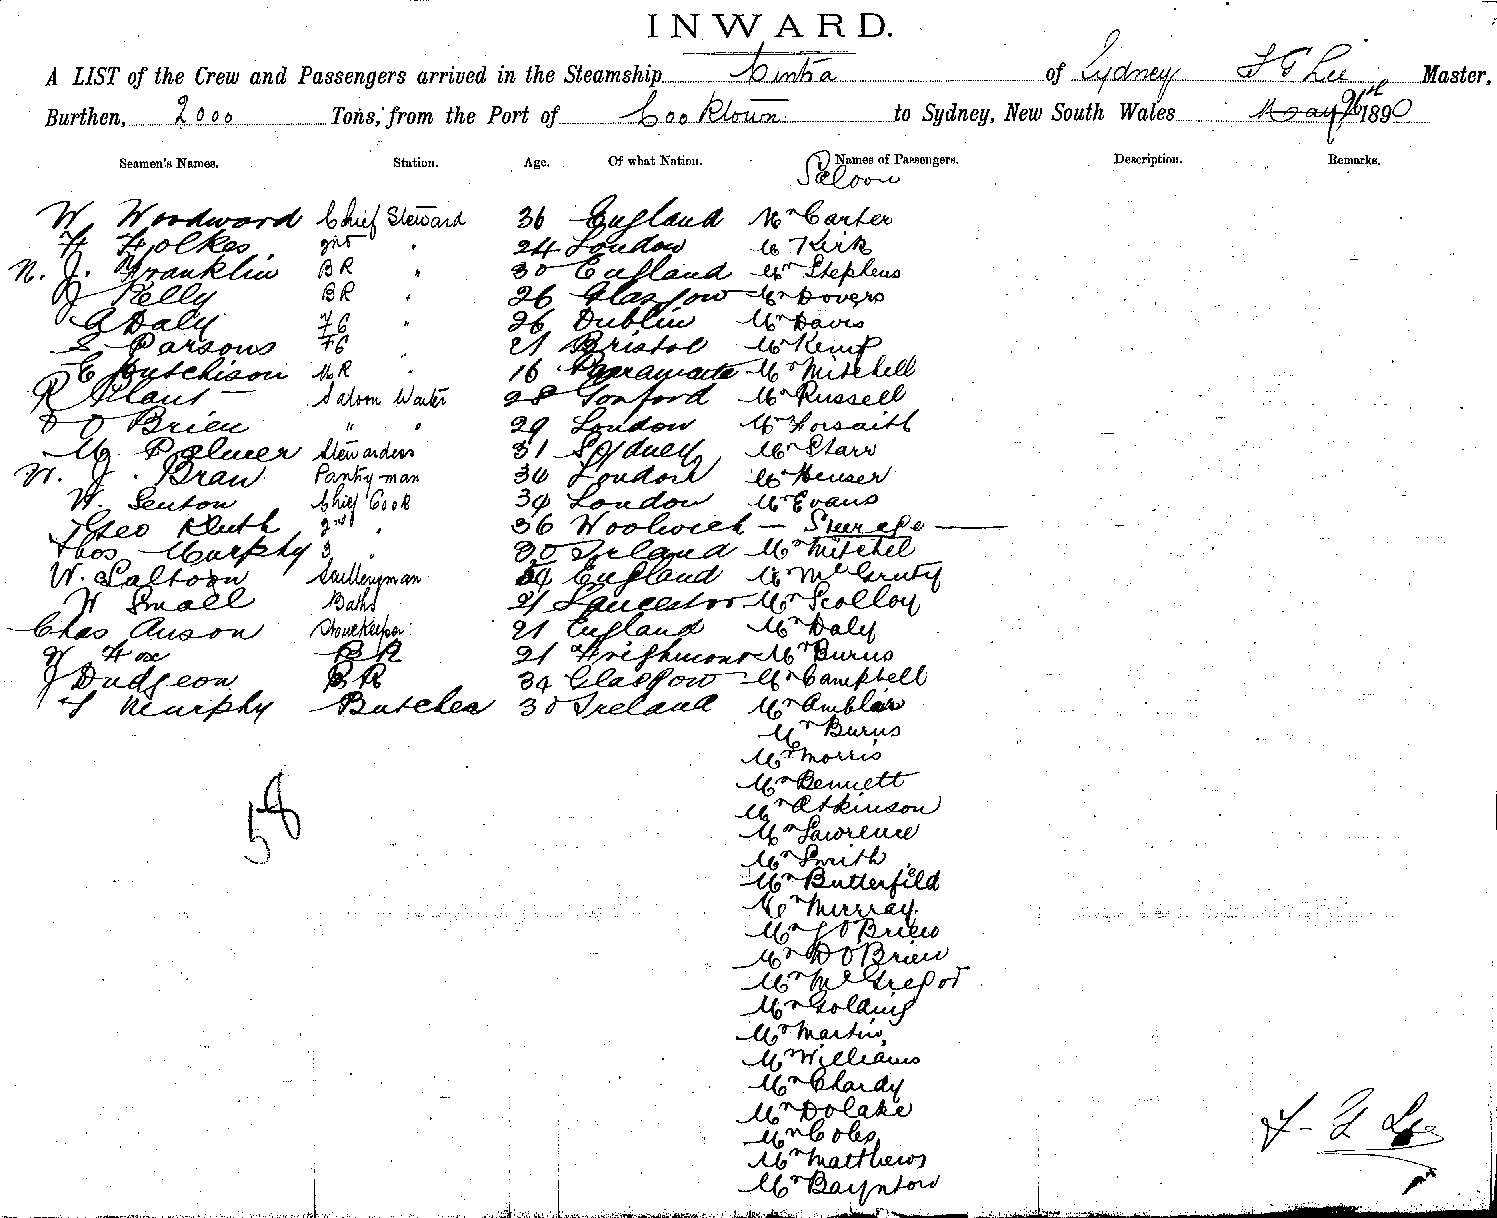 INWARD.
A LIST of the Crew and Passengers arrived in the Steamship Cintra of Sydney F G Lee Master,
Burthen, 2000 Tons, from the Port of Cooktown to Sydney, New South Wales May 9th 1890
Seamen's Names. Station. Age. Of what Nation. Names of Passengers. Description. Remarks.
Saloon
W Woodward Chief Steward 36 England Mr Carter
F Folkes 2nd " 24 London Mr Kirk
N. J. Franklin BR " 30 England Mr Stephens
J Kelly BR " 26 Glasgow Mr Dovers
A Daly FC " 26 Dublin Mr Davis
S Parsons FC " 21 Bristol Mr Kemp
E Hutchison MR " 16 Parramatta Mr Mitchell
R Plant Saloon Waiter 28 Mr Russell
D O Brien " " 29 London Mr Forsaith
M Palmer Stewardess 31 Sydney Mr Starr
W. J. Bran Pantryman 30 London Mr Heuser
W. Senton Chief Cook 39 London Mr Evans
Geo Kluth 2nd " 36 Woolwich — Steerage —
Thos Murphy 3 " 30 Ireland Mr Mitchel
W. Saltoun Sculleryman 54 England Mr McGruty
W Small Baths 21 Mr Scolloy
Chas Anson Storekeeper 21 England Mr Daly
W Fox BR 21 Mr Burns
J Dudgeon BR 34 Glasgow Mr Campbell
T Murphy Butcher 30 Ireland Mr Amblair
Mr Burns
Mr Morris
Mr Bennett
Mr Atkinson
Mr Lawrence
58 Mr Smith
Mr Butterfild
Mr Murray
Mr J O Brien
Mr D O Brien
Mr McGregor
Mr Golding
Mr Martin
Mr Williams
Mr Chardy
Mr Dolake
Mr Coles
F. G Lee
Mr Matthews
Mr Baynton